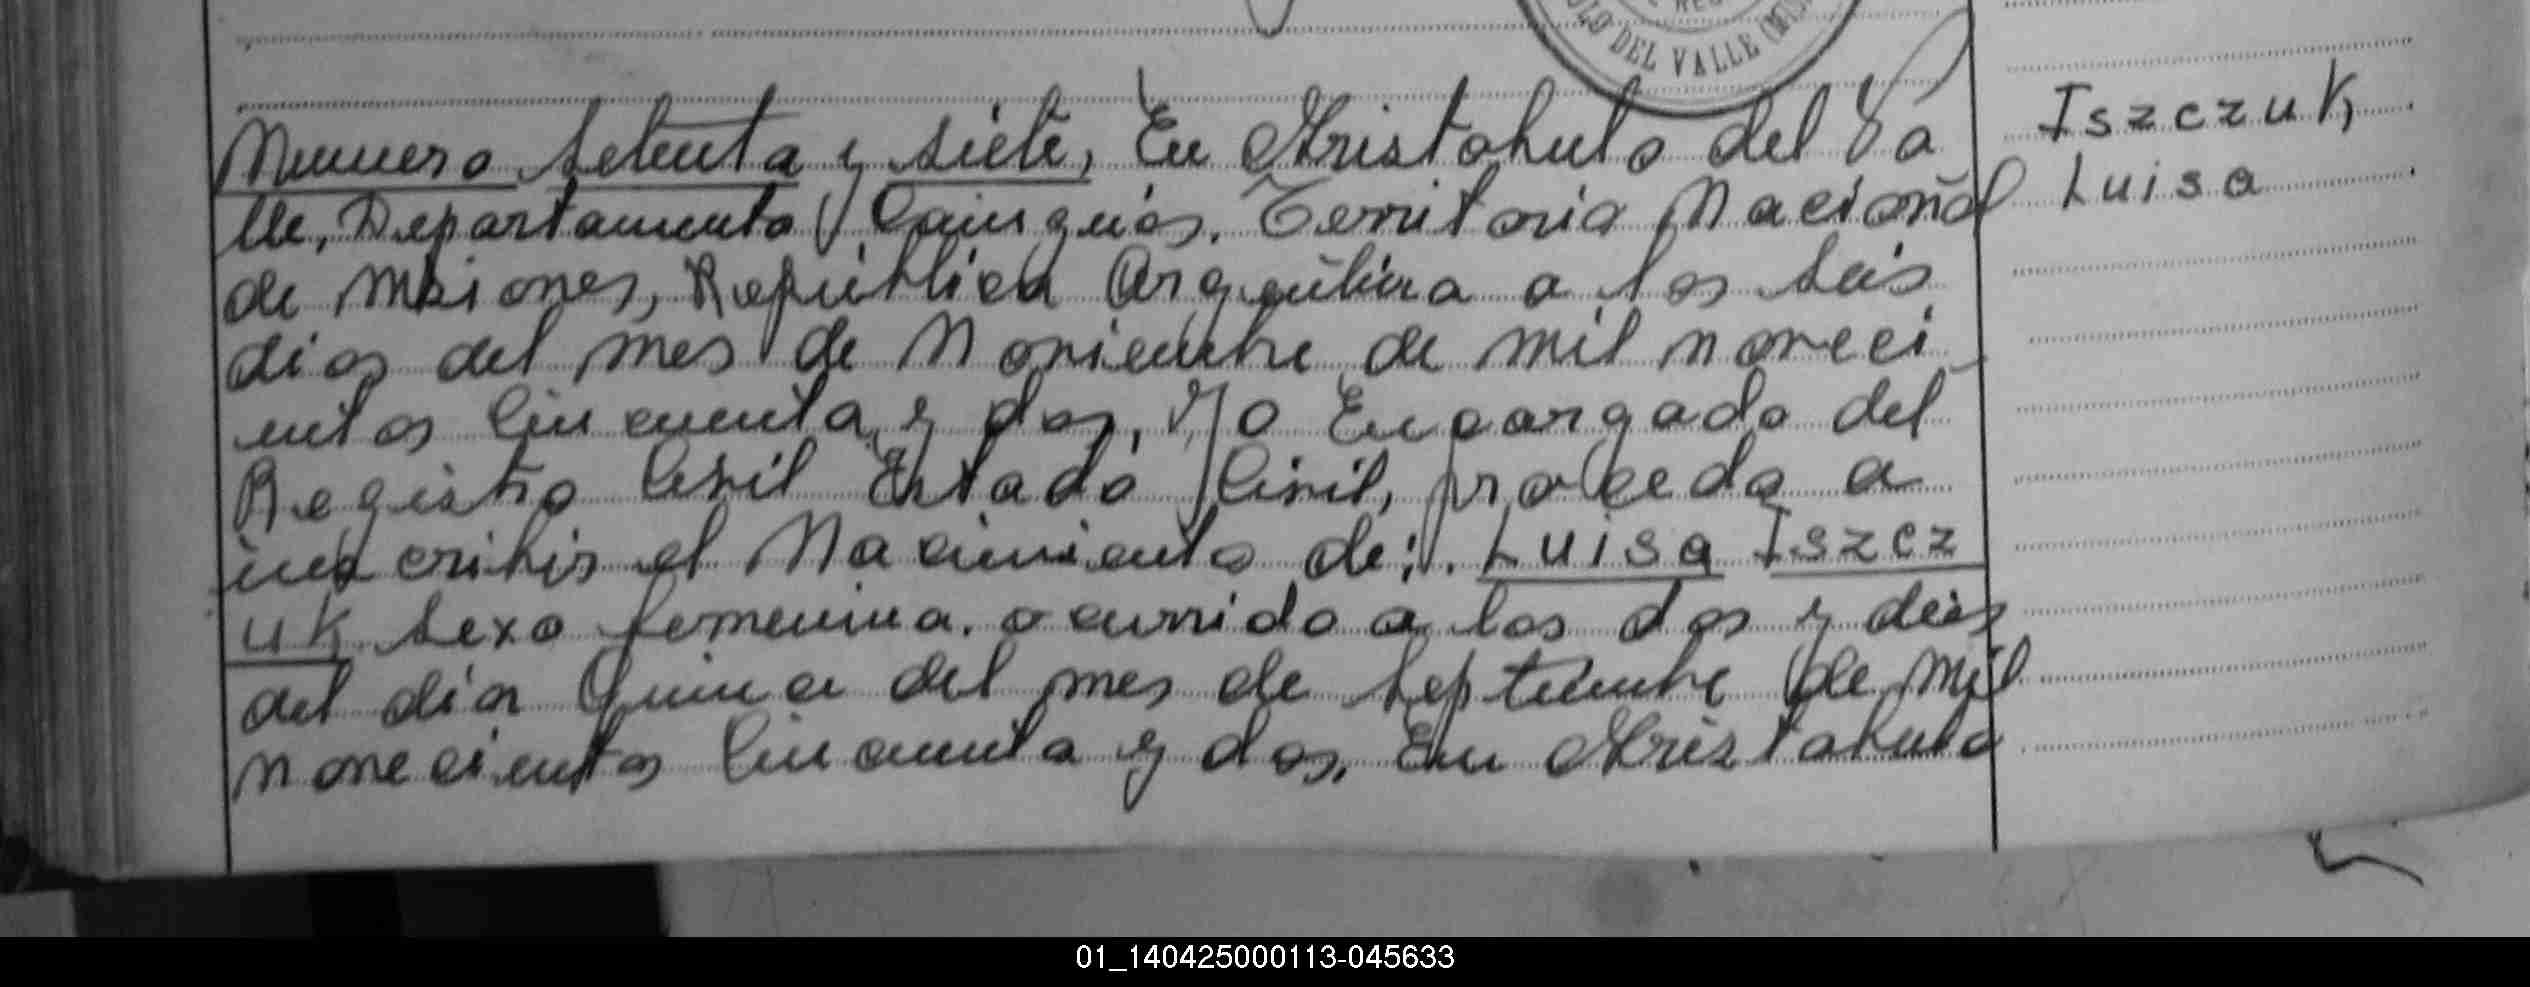 OLO DEL VALLE (MIS
Numero setenta y siete, En Aristobulo del Va
lle, Departamento Cainguás, Territorio Nacional
de Misiones, República Argentina a los seis
dias del mes de Noviembre de mil noveci
entos Cincuenta y dos, Yo Encargado del
Registro Civil Estado Civil, procedo a
inscribir el Nacimiento de: Luisa Iszcz
uk Sexo femenina. ocurrido a las dos y dies
del día Quince del mes de Septiembre de Mil
novecientos Cincuenta y dos, En Aristobulo
Iszczuk,
Luisa
01_140425000113-045633